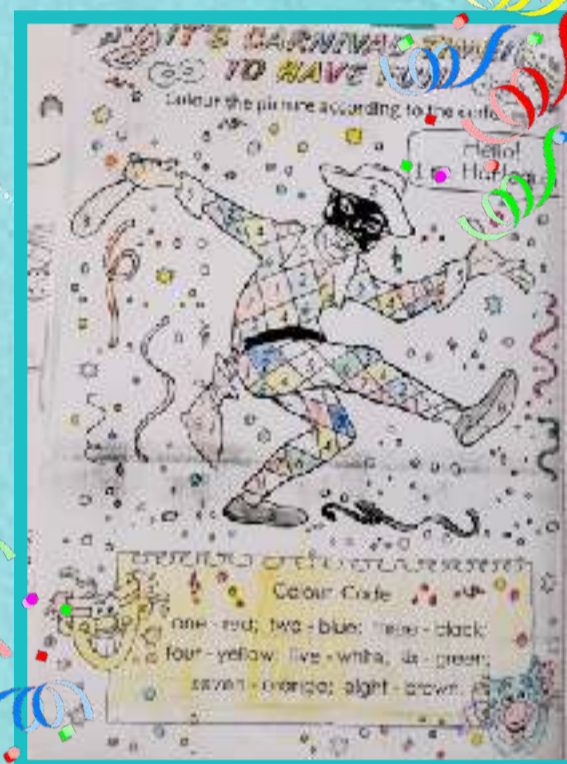 IT'S CARNIVAL TIME!
TO HAVE FUN
Colour the picture according to the code
Hello!
I'm Harlequin
Colour Code
one - red; two - blue; three - black;
four - yellow; five - white; six - green;
seven - orange; eight - brown.